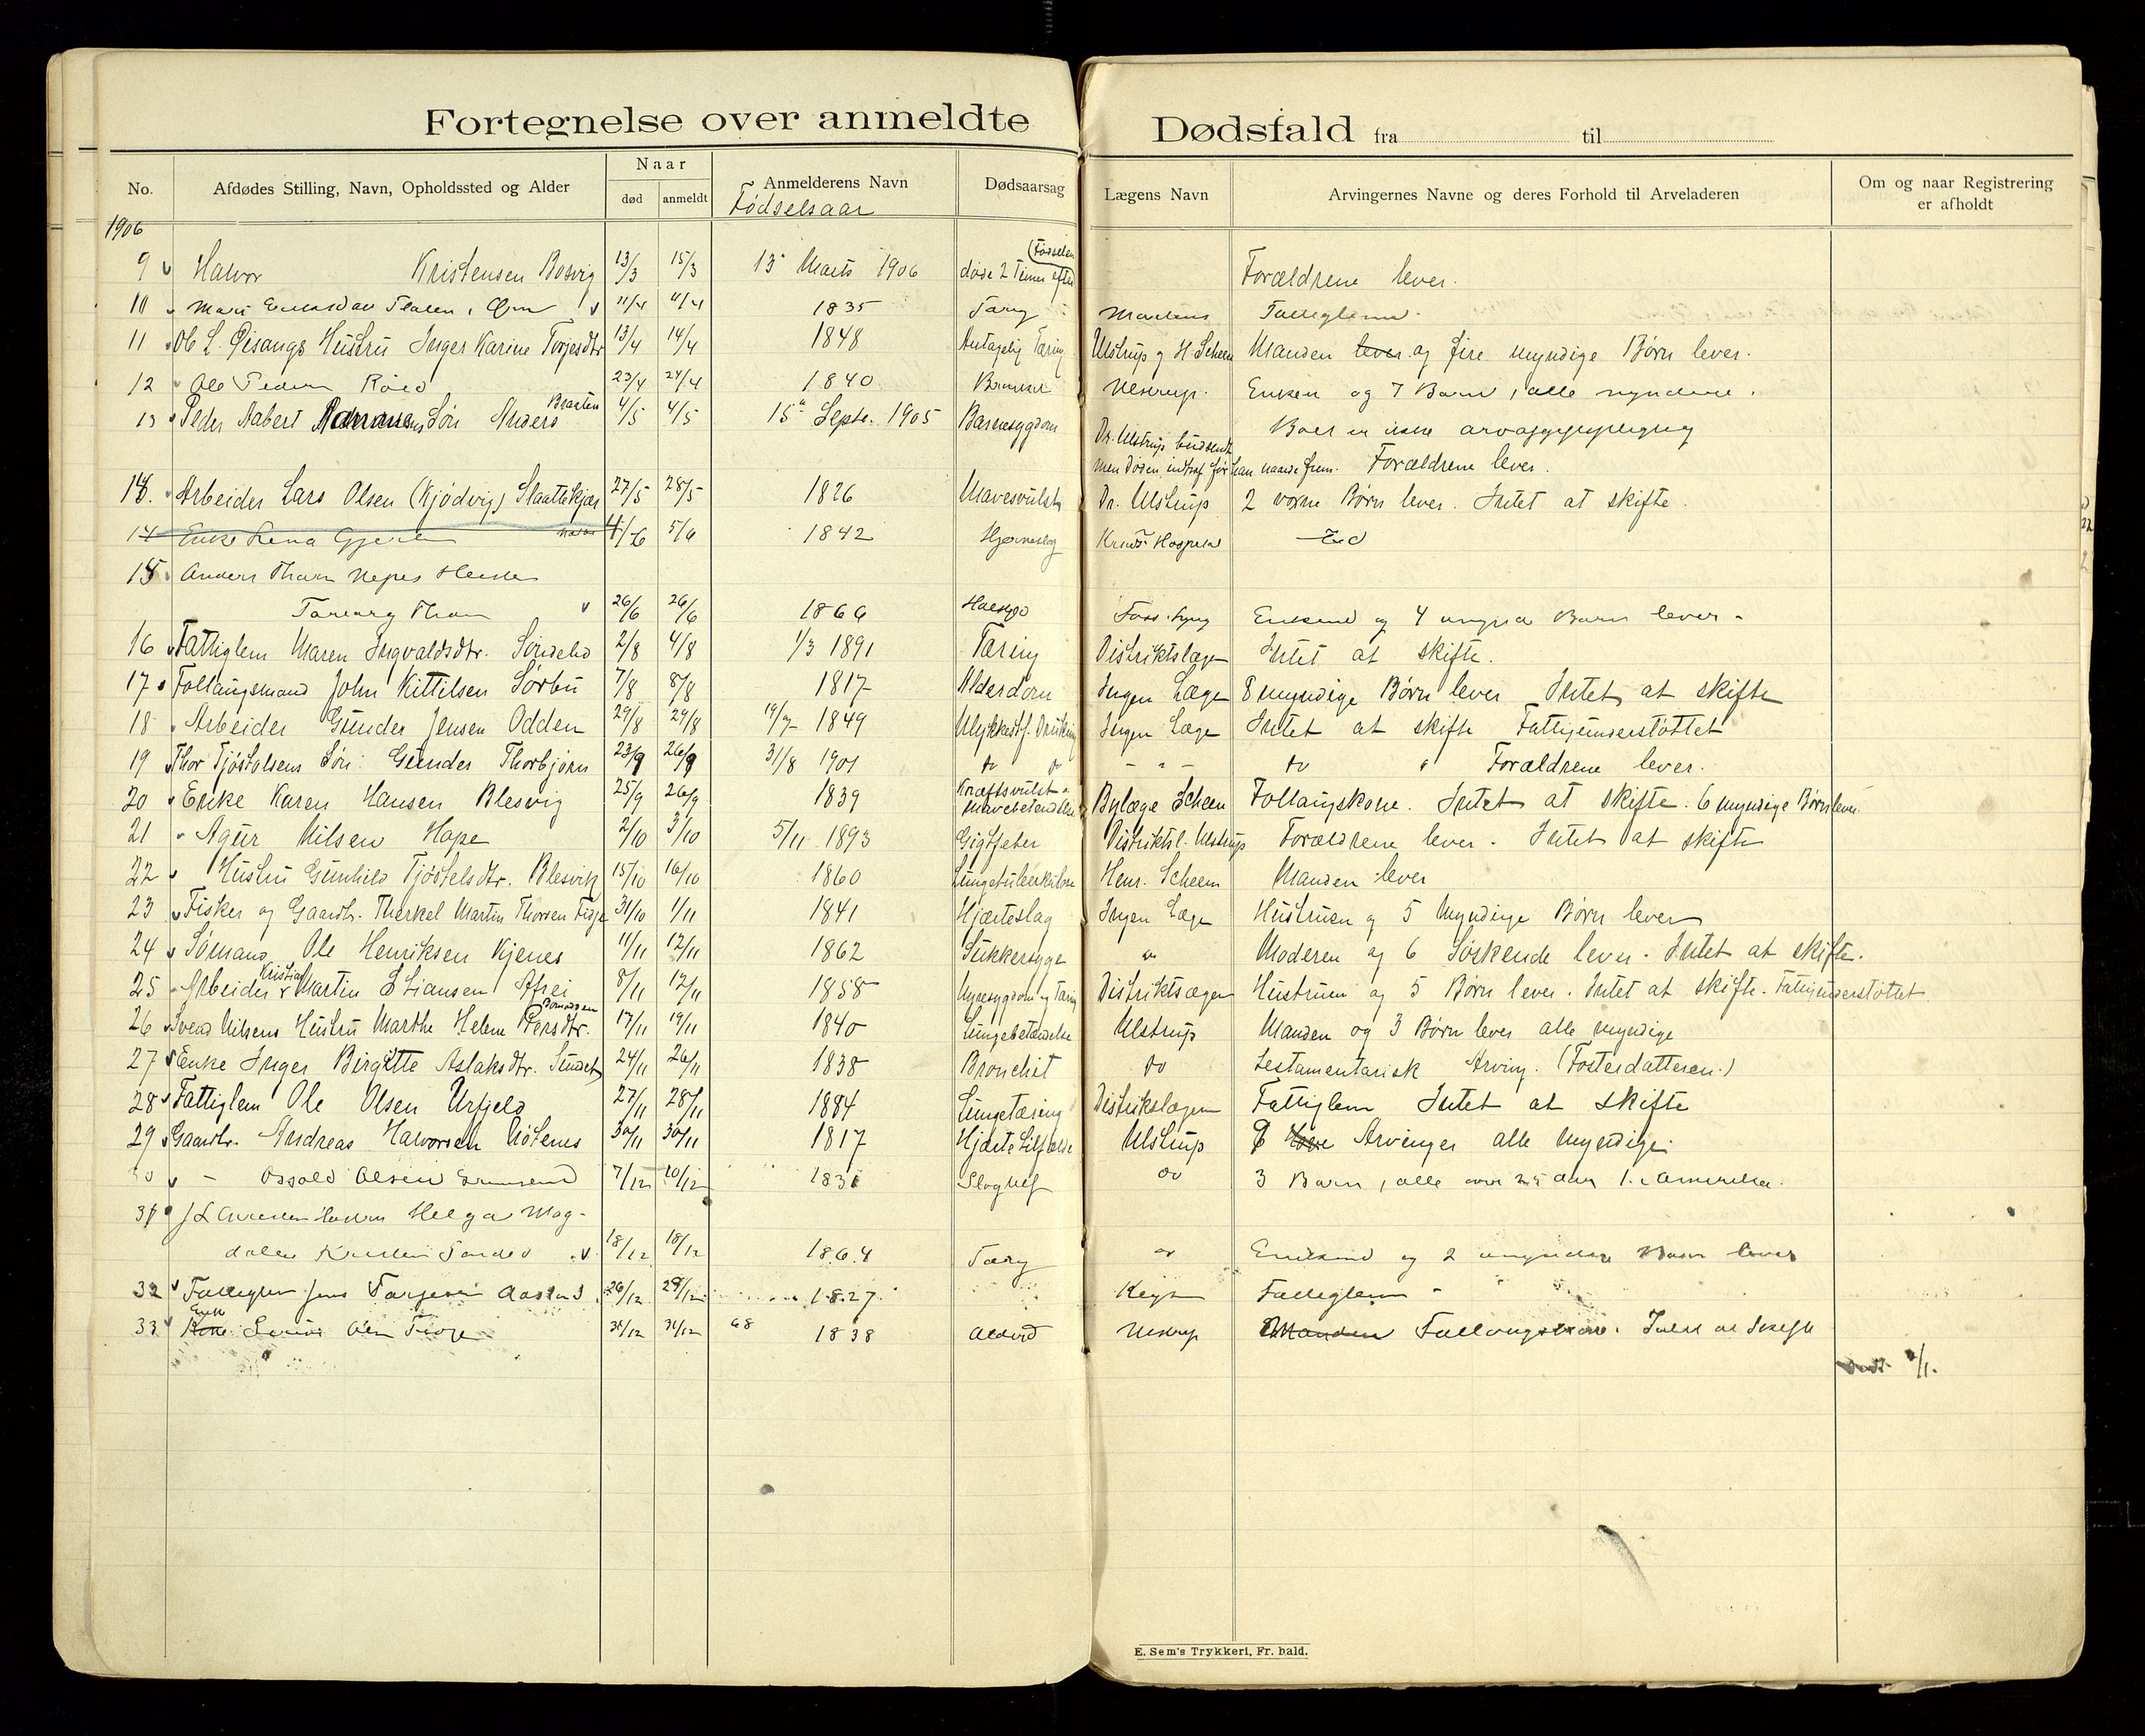 Fortegnelse over anmeldte Dødsfald fra til
No. Afdødes Stilling, Navn, Opholdssted og Alder Naar død anmeldt Anmelderens Navn Fødselsaar Dødsaarsag Lægens Navn Arvingernes Navne og deres Forhold til Arveladeren Om og naar Registrering er afholdt
1906
9 Halvor Kristensen Bosvig 13/3 15/3 13 Marts 1906 døde 2 Timer efter Fødselen Forældrene lever.
10 11/4 11/4 1835 Tæring Fattiglem
11 Ole L. Gisangs Hustru Inger Karine Torjesdtr 13/4 14/4 1848 Antagelig Tæring Ulstrup og H. Scheen Manden lever og fire myndige Børn lever.
12 Ole Pedersen Røed 23/4 24/4 1840 Ulstrup. Enken og 7 Børn, alle myndige.
13 Peder Aabert Søn Anders Braaten 4/5 4/5 15de Septr. 1905 Barnesygdom Boet er
Dr. Ulstrup budsendt men Døden indtraf før han naaede frem. Forældrene lever.
14. Arbeider Lars Olsen (Kjødvig) Slaattekjær 27/5 28/5 1826 Mavesvulst Dr. Ulstrup 2 voxne Børn lever. Intet at skifte.
14 Enke Lena 4/6 5/6 1842 Hjerneslag
15 Anders Nepes
26/6 26/6 1866 Enkemd og 4 Børn lever.
16 Fattiglem Maren Ingvaldsdtr. Søndeled 2/8 4/8 1/3 1891 Tæring Distriktslægen Intet at skifte.
17 Follaugsmand John Kittilsen Sørbu 7/8 8/8 1817 Alderdom Ingen Læge 8 myndige Børn lever Intet at skifte
18 Arbeider Gunder Jensen Odden 29/8 29/8 19/7 1849 Ulykkestf. Drukning Ingen Læge Intet at skifte Fattigunderstøttet
19 Thor Tjøstolsens Søn: Gunder Thorbjørn 23/9 26/9 31/8 1901 do do - " - do " Forældrene lever.
20 Enke Karen Hansen Blesvig 25/9 26/9 1839 Kræftsvulst Mavebetændelse Bylæge Scheen Follaugskone. Intet at skifte. 6 myndige Børn lever.
21 Agur Nilsen Hope 2/10 3/10 5/11 1893 Gigtfeber Distriktsl. Ulstrup Forældrene lever. Intet at skifte
22 Hustru Gunhild Tjøstelsdtr. Blesvik 15/10 16/10 1860 Lungetuberkulose Henr. Scheen Manden lever
23 Fisker og Gaardbr. Therkel Martin Thorsen Fige 31/10 1/11 1841 Hjerteslag Ingen Læge Hustruen og 5 Myndige Børn lever
24 Sømand Ole Henriksen Kjenes 11/11 12/11 1862 Sukkersyge " Moderen og 6 Søskende lever. Intet at skifte.
25 Arbeider Kristian Martin Stiansen 8/11 12/11 1858 Nyresygdom og Tæring Distriktslægen Hustruen og 5 Børn lever. Intet at skifte. Fattigunderstøttet
26 Svend Nilsens Hustru Marthe Helene Persdtr. 17/11 19/11 1840 Lungebetændelse Ulstrup Manden og 3 Børn lever alle myndige
27 Enke Inger Birgitte Aslaksdtr. Sundet 24/11 26/11 1838 Bronchit do Testamentarisk Arving. (Fosterdatteren.)
28 Fattiglem Ole Olsen Urfjeld 27/11 28/11 1884 Lungetæring Distriktslægen Fattiglem Intet at skifte
29 Gaardbr. Andreas Halvorsen 30/11 30/11 1817 Ulstrup 9 Arvinger alle Myndige.
30 - Osvald Olsen 7/12 10/12 1831 do 3 Børn, alle over 25 Aar 1 i Amerika.
31 Helga Mag-
dalene 18/12 18/12 1864 Tæring do Enkemd og 2 Børn lever
32 Fattiglem Jens Torjesen 26/12 29/12 1827 Fattiglem
33 Enke Olsen 31/12 31/12 68 1838 Ulstrup Manden Follaugskone. Intet at skifte
E. Sem's Trykkeri, Fr. hald.